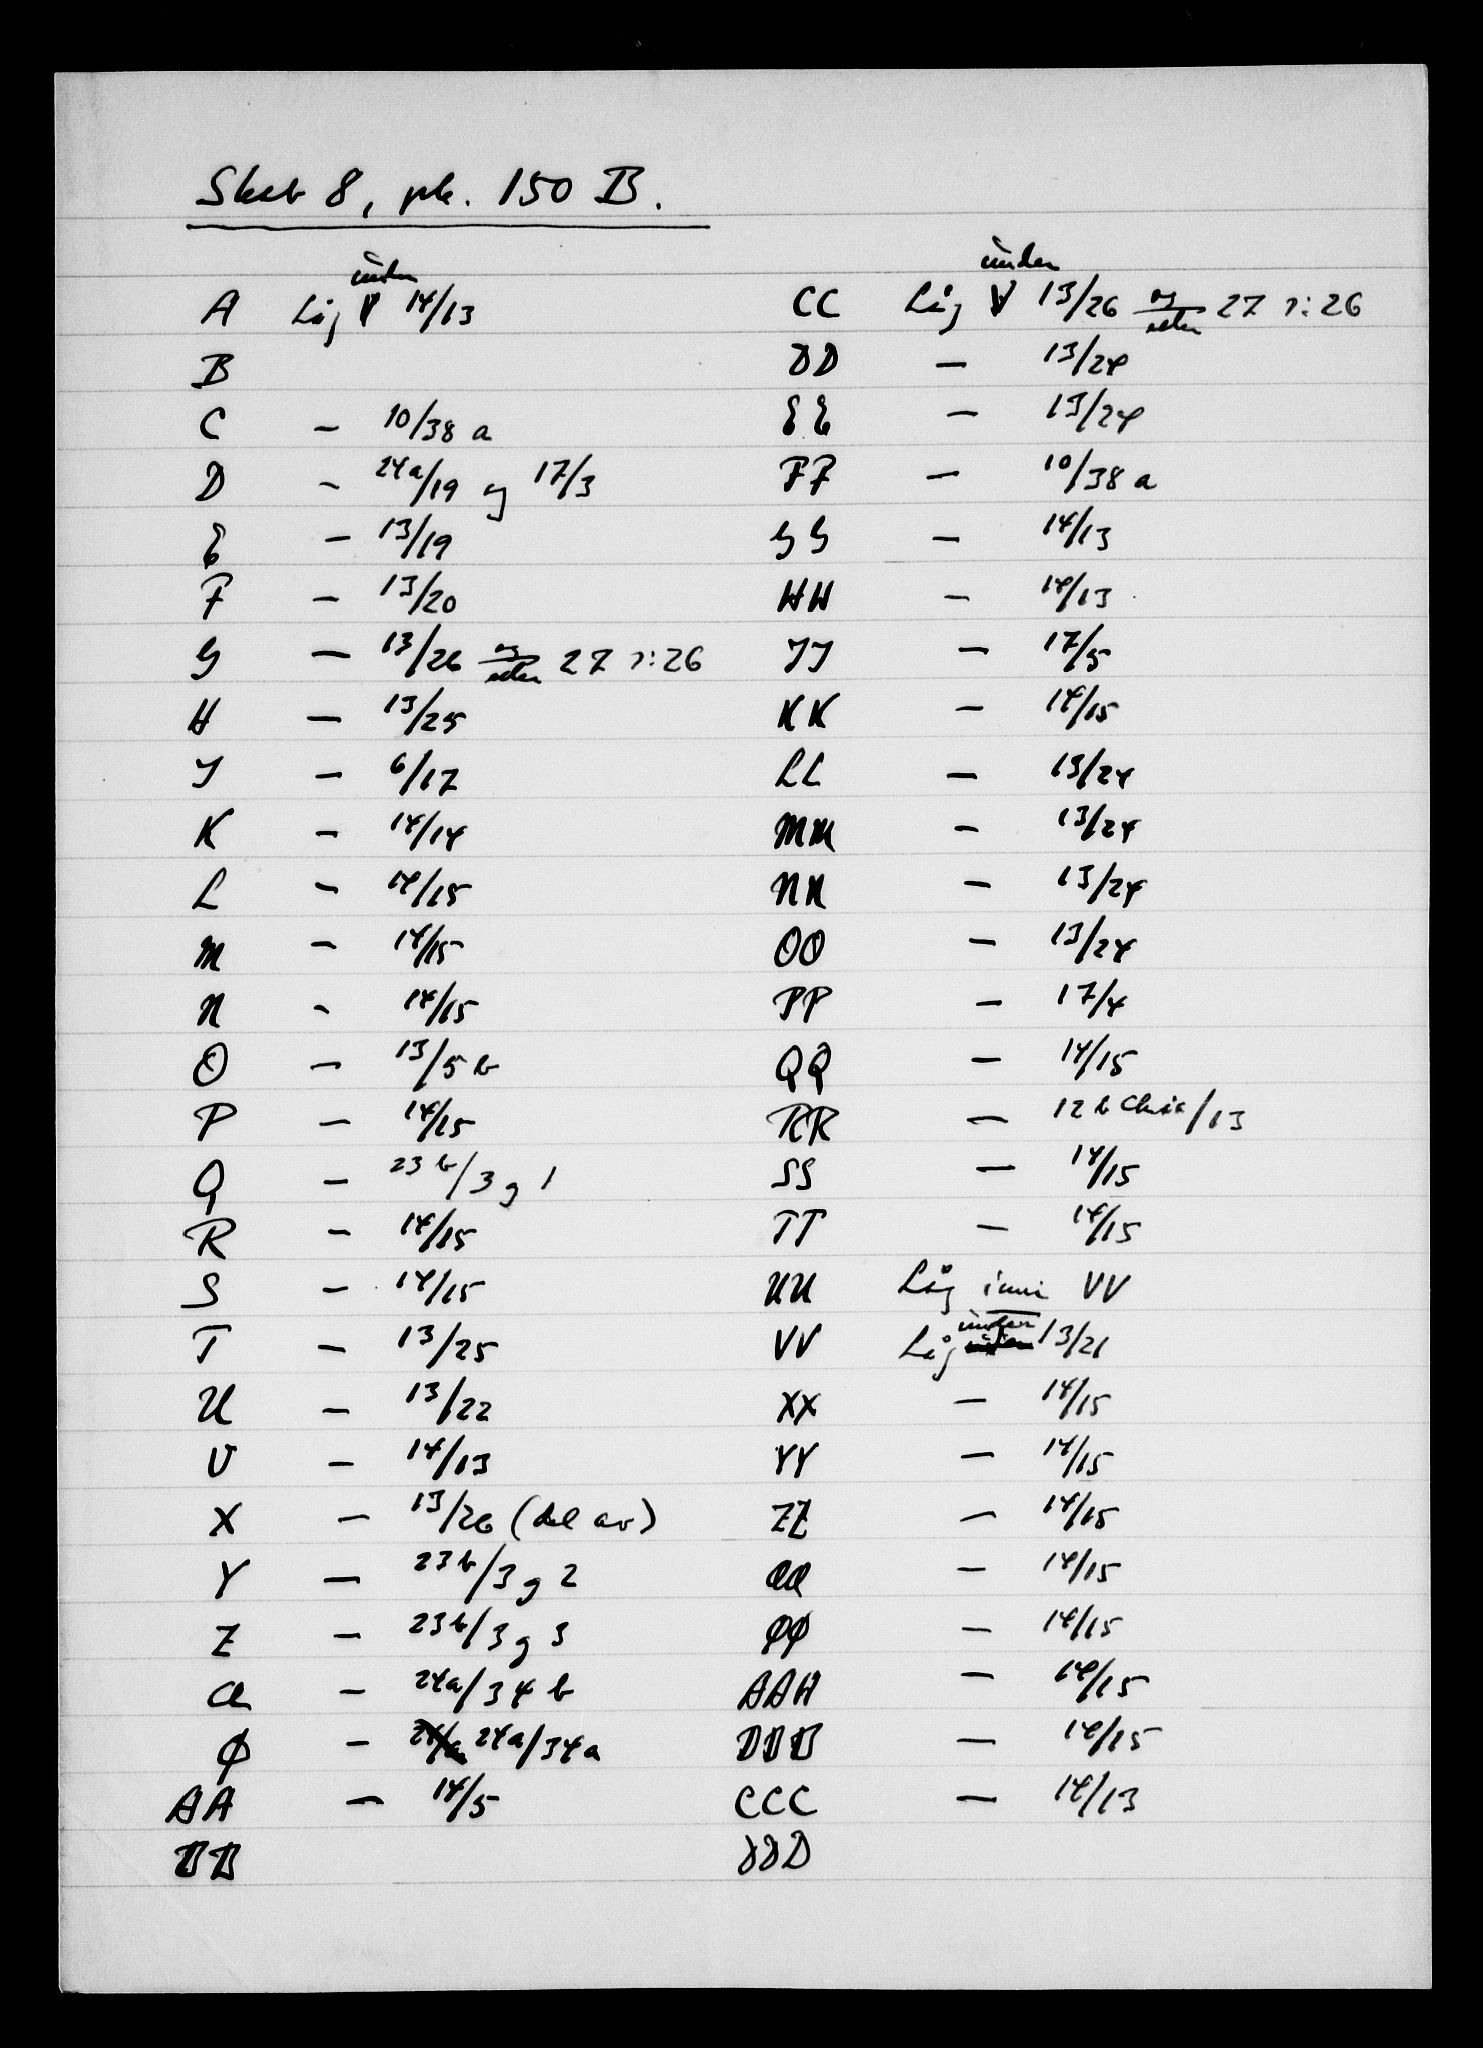 Skab 8, pk. 150 B.
A Låg under 14/13
B
C – 10/38 a
D – 24a/19 og 17/3
E – 13/19
F – 13/20
G – 13/26 og eller 27 ɔ: 26
H – 13/25
I – 6/17
K – 14/14
L – 14/15
M – 14/15
N – 14/15
O – 13/5 b
P – 14/15
Q – 23 b/3 g 1
R – 14/15
S – 14/15
T – 13/25
U – 13/22
V – 14/13
X – 13/26 (del av)
Y – 23 b/3 g 2
Z – 23 b/3 g 3
Æ – 24a/34 b
Ø – 24a/34a
AA – 14/5
BB
CC Låg under 13/26 og eller 27 ɔ: 26
DD – 13/24
EE – 13/24
FF – 10/38 a
GG – 14/13
HH – 14/13
II – 17/5
KK – 14/15
LL – 13/24
MM – 13/24
NN – 13/24
OO – 13/24
PP – 17/4
QQ – 14/15
RR – 12 b /13
SS – 14/15
TT – 14/15
UU Låg inni VV
VV Låg under 13/21
XX – 14/15
YY – 14/15
ZZ – 14/15
ÆÆ – 14/15
ØØ – 14/15
AAA – 14/15
BBB – 14/15
CCC – 14/13
DDD